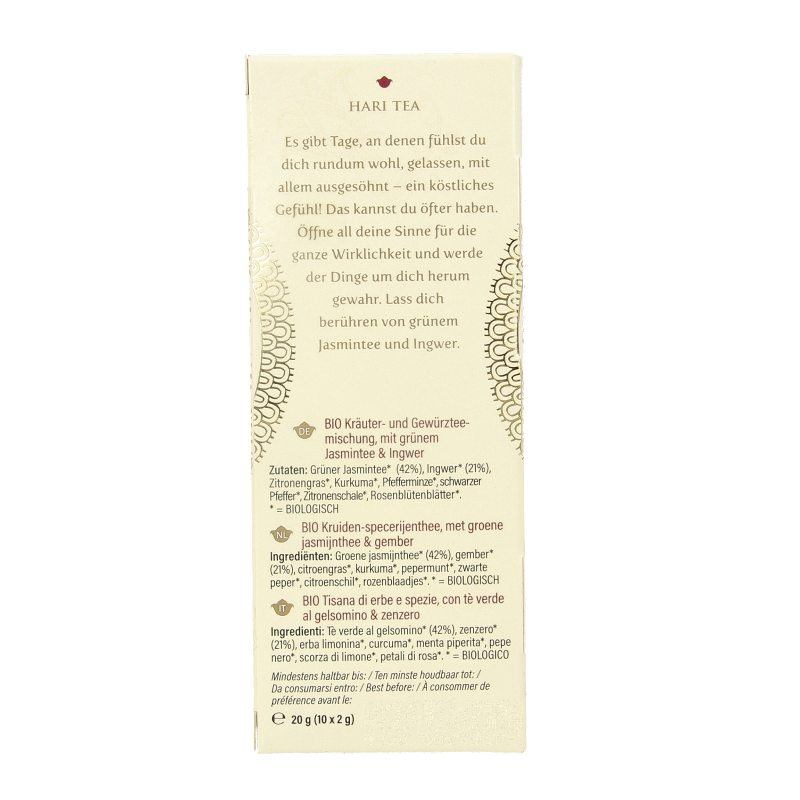 HARI TEA
Es gibt Tage, an denen fühlst du
dich rundum wohl, gelassen, mit
allem ausgesöhnt – ein köstliches
Gefühl! Das kannst du öfter haben.
Öffne all deine Sinne für die
ganze Wirklichkeit und werde
der Dinge um dich herum
gewahr. Lass dich
berühren von grünem
Jasmintee und Ingwer.
DE
BIO Kräuter- und Gewürztee-
mischung, mit grünem
Jasmintee & Ingwer
Zutaten: Grüner Jasmintee* (42%), Ingwer* (21%),
Zitronengras*, Kurkuma*, Pfefferminze*, schwarzer
Pfeffer*, Zitronenschale*, Rosenblütenblätter*.
* = BIOLOGISCH
NL
BIO Kruiden-specerijenthee, met groene
jasmijnthee & gember
Ingrediënten: Groene jasmijnthee* (42%), gember*
(21%), citroengras*, kurkuma*, pepermunt*, zwarte
peper*, citroenschil*, rozenblaadjes*. * = BIOLOGISCH
IT
BIO Tisana di erbe e spezie, con tè verde
al gelsomino & zenzero
Ingredienti: Tè verde al gelsomino* (42%), zenzero*
(21%), erba limonina*, curcuma*, menta piperita*, pepe
nero*, scorza di limone*, petali di rosa*. * = BIOLOGICO
Mindestens haltbar bis: / Ten minste houdbaar tot: /
Da consumarsi entro: / Best before: / À consommer de
préférence avant le:
℮ 20 g (10 x 2 g)